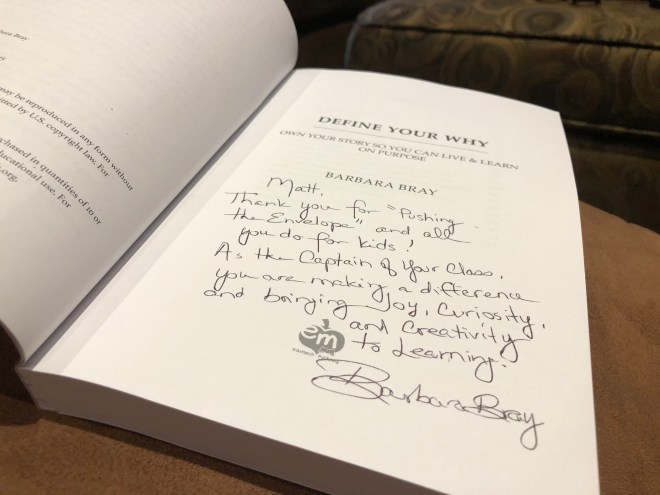 bara Bray
may be reproduced in any form without
U.S. copyright law. For
purchased in quantities of 10 or
educational use. For
.org.
DEFINE YOUR WHY
OWN YOUR STORY SO YOU CAN LIVE & LEARN
ON PURPOSE
BARBARA BRAY
Matt,
Thank you for "Pushing
the Envelope" and all
you do for kids!
As the Captain of Your Class,
you are making a difference
and bringing Joy, Curiosity,
and Creativity
to Learning!
em
Barbara Bray